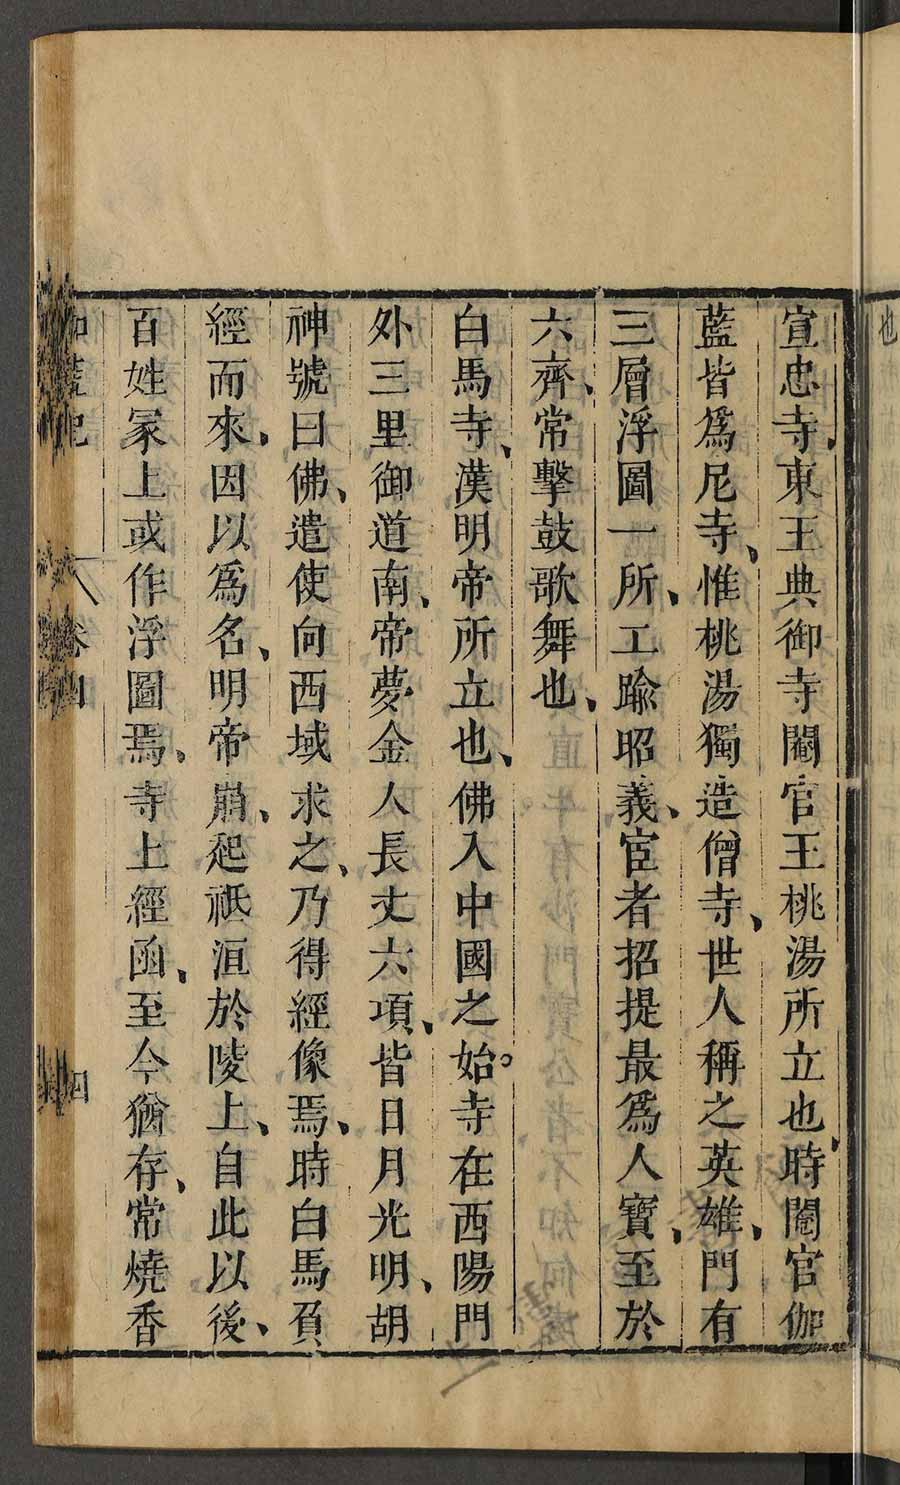 宣忠寺、東王典御寺閹官王桃湯所立也、時閹官伽
藍皆爲尼寺、惟桃湯獨造僧寺、世人稱之英雄、門有
三層浮圖一所、工踰昭義、宦者招提最爲人寶、至於
六齋、常擊鼓歌舞也、
白馬寺、漢明帝所立也、佛入中國之始。寺在西陽門
外三里御道南、帝夢金人長丈六、項皆日月光明、胡
神號曰佛、遣使向西域求之、乃得經像焉、時白馬負
經而來、因以爲名、明帝崩、起祇洹於陵上、自此以後、
百姓冢上或作浮圖焉、寺上經函、至今猶存、常燒香
伽藍記 卷四 四
也